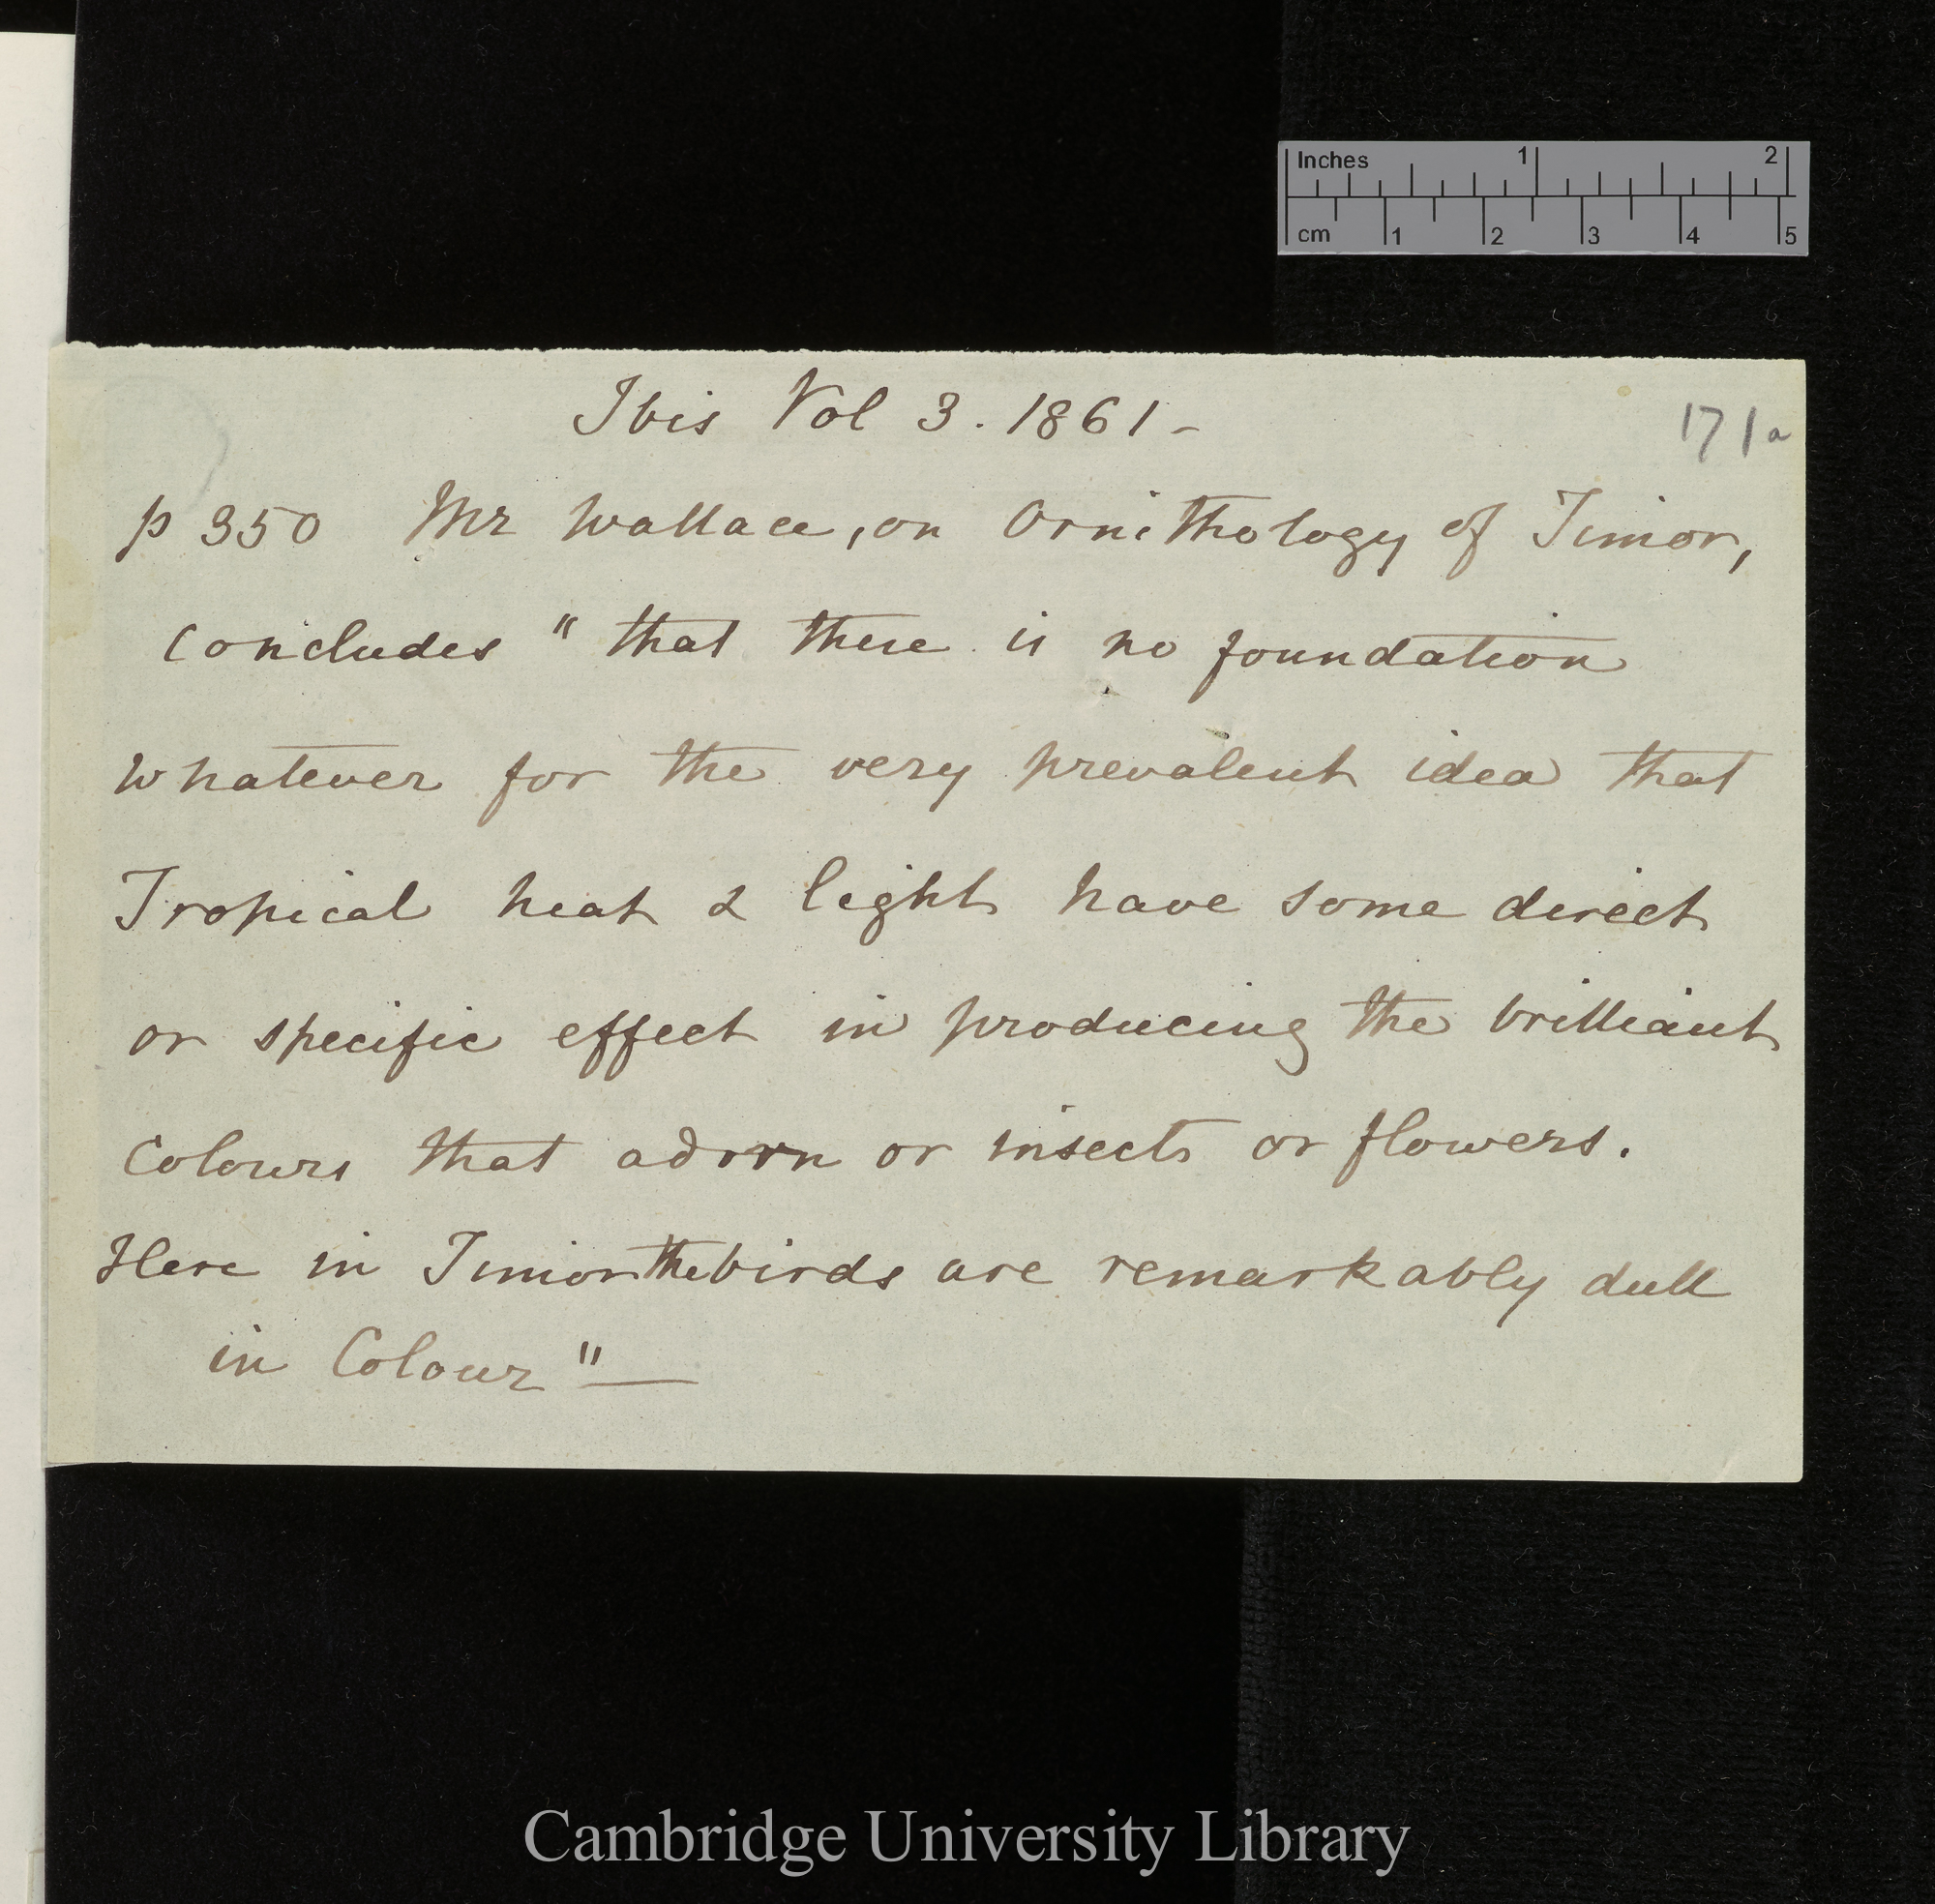 Inches 1 2
cm 1 2 3 4 5
Ibis Vol 3. 1861 -
171a
p 350 Mr Wallace, on Ornithology of Timor,
Concludes " that there is no foundation
whatever for the very prevalent idea that
Tropical heat & light have some direct
or specific effect in producing the brilliant
Colours that adorn or insects or flowers.
Here in Timor the birds are remarkably dull
in Colour" —
Cambridge University Library